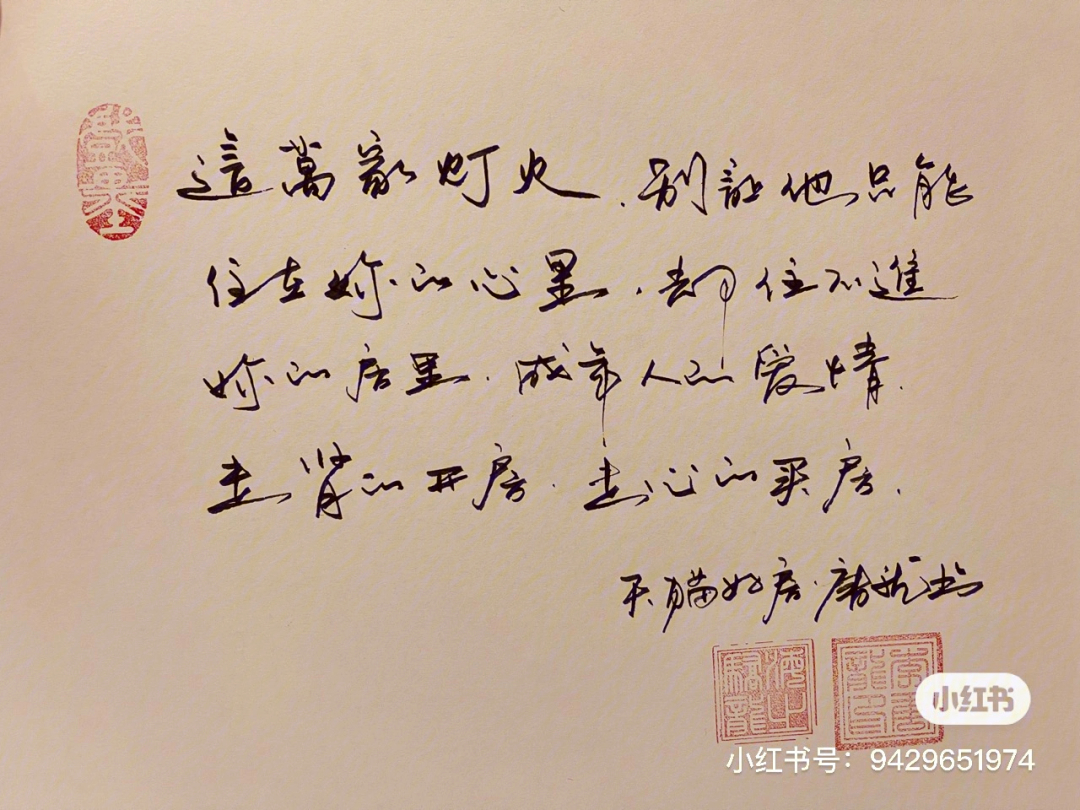 這萬家灯火.别讓他只能
住在妳的心里.却住不進
妳的房里.成年人的爱情.
走肾的开房.走心的买房.
天猫好房·唐龙
小红书
小红书号：9429651974